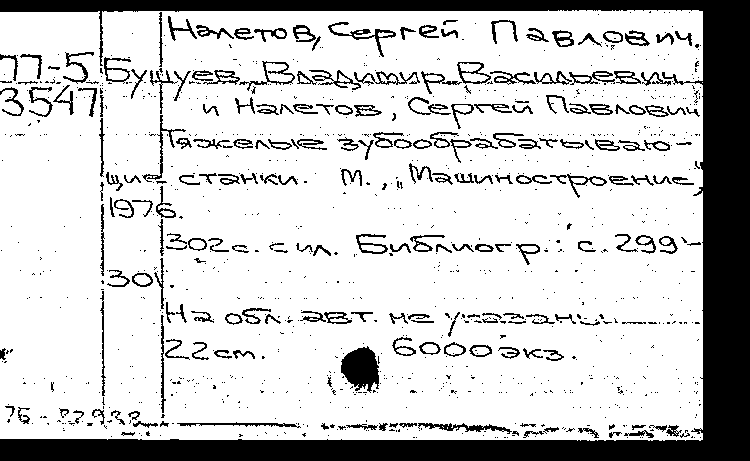 Налетов, Сергей Павлович.
77-5 Бушуев, Владимир Васильевич
3547 и Налетов, Сергей Павлович
Тяжелые зубообрабатываю-
щие станки. М., „Машиностроение,"
1976.
302 с. с ил. Библиогр.: с. 299-
301.
На обл. авт. не указаны.
22 см. 6000 экз.